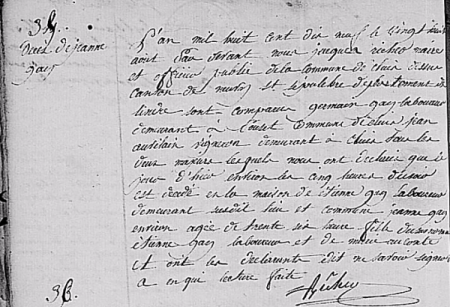 35
Deces de jeanne
gay
L'an mil huit cent dix neuf le vingt huit
aout par devant nous jacques maire
et officier public de la commune de
canton de et departement de
lindre sont comparus germain gay laboureur
demeurant a commune de jean
vigneron demeurant a tous les
deux majeurs lesquels nous ont declaré que le
jour d'hier environ les cinq heures du soir
est decedé en la maison de etienne gay laboureur
demeurant susdit lieu et commune jeanne gay
environ agée de trente six fille du
etienne gay laboureur et de
et ont les declarants dit ne savoir signer
a en qui lecture fait
36.